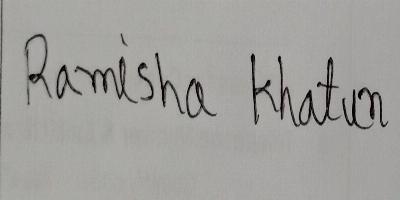 Ramisha Khatun